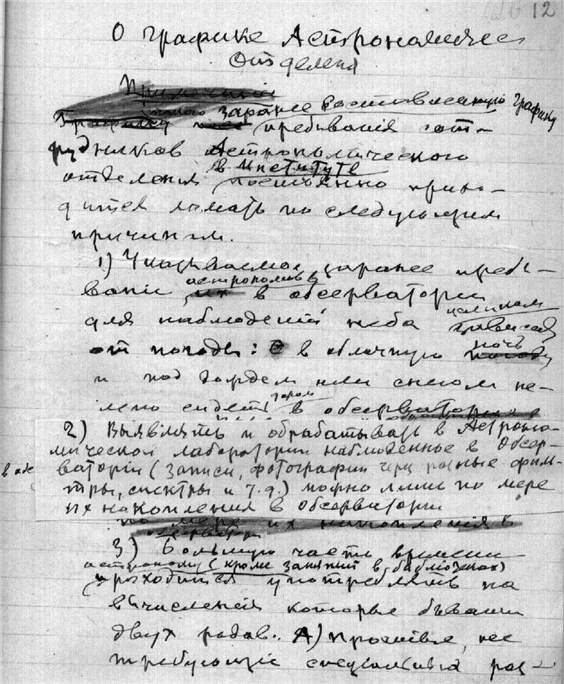 12
О графике Астрономичес
Отделения
заранее составленную графику
пребывания сот-
рудников Астрономического
в Институте
отделения постоянно прихо-
дится ломать по следующим
причинам.
1) Указываемое заранее пребы-
астрономов
вание их в обсерватории
целиком
для наблюдений неба зависит
ночь
от погоды: в облачную погоду
и под дождем или снегом не-
даром
сидеть в обсерватории
2) Выявлять и обрабатывать в Астроно-
мической лаборатории наблюденное в Обсер-
ватории (записи, фотографии через разные филь-
тры, спектры и т.д.) можно лишь по мере
их накопления в Обсерватории
по мере их накопления в
3) Большую часть времени
астроному (кроме занятий в библиотеках)
приходится употреблять на
вычисления которые бывают
двух родов. А) Простые, не
требующие раз-